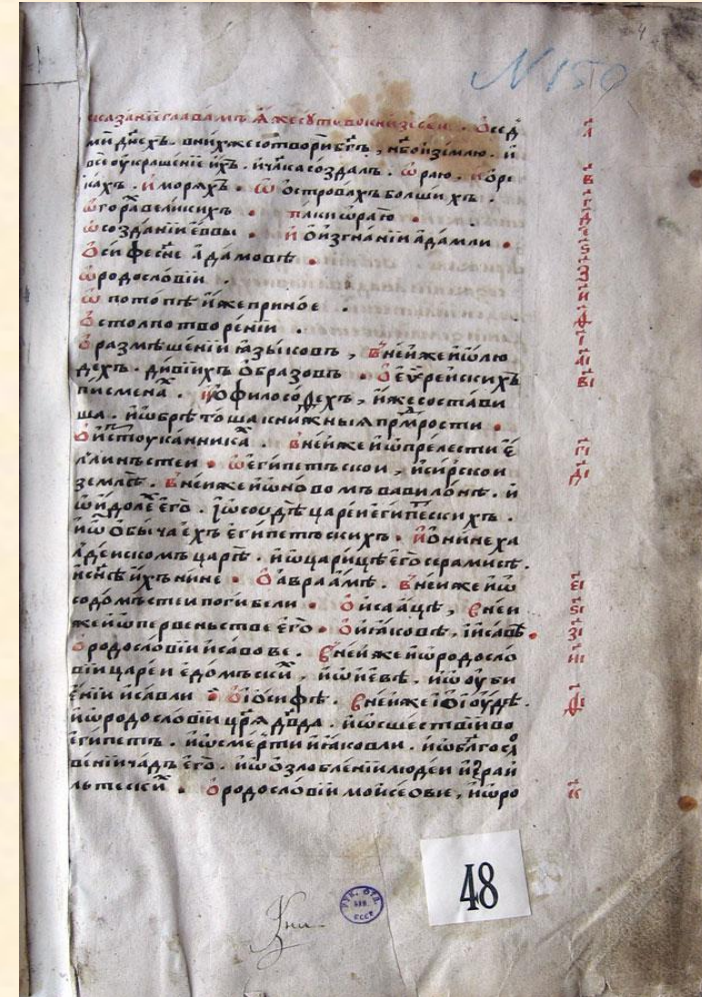 N 150
сказанїе главамъ ꙗ҆же сꙋть во книзѣ сеи . Ѻ сед
ми днехъ . в нихже сотвори бг҃ъ , нб҃о и землю . и
все оукрашение ихъ . и чл҃ка созда . ѡ раю .
кахъ . и моряхъ . ѡ островахъ болшихъ .
ѡ горахъ великихъ . паки ѡ раю .
ѡ созданїи еввы . и о изгнанїи адамли .
Ѻ сифе сн҃е адамовѣ .
ѡ родословїи .
ѡ потопѣ иже при ное .
Ѻ столпотворенїи .
Ѻ размѣшенїи ꙗзыковъ , в неиже и ѡ лю
дехъ . дивїихъ образовъ . Ѻ еѵреискихъ
писменахъ . о философехъ , иже состави
ша . и ѡбрѣтоша книжныя прмⷣрости .
в неиже и ѡ прелести е
ллинъстеи . ѡ египетъскои , и сирскои
землѣ . в неиже и ѡ новомъ вавилонѣ . и
ѡ идоле его . ѡ сꙋдѣ цареи египескихъ .
и ѡ обычаехъ египетъскихъ . и о нине ха
лдеискомъ царѣ . и ѡ царицѣ его серамисѣ .
и сн҃ѣ ихъ нине . Ѻ авраамѣ . в неиже и ѡ
содомъстеи погибели . Ѻ исаацѣ , в неи
же и ѡ первеньстве его . Ѻ иꙗковѣ , и исавѣ .
Ѻ родословїи исавове . в неиже и ѡ родосло
вїи цареи едомъски , и ѡ иевѣ . и ѡ оуби
енїи исавли . Ѻ їосифѣ . в неиже и ѡ їоудѣ .
и ѡ родословїи цр҃я дв҃да . и ѡ сшествїи во
египетъ . и ѡ смерти иꙗковли . и ѡ блгосⷧ
венїи чадъ его . и ѡ озлобленїи людеи израи
льтески . Ѻ родословїи моисеове , и ѡ ро
а
в
г
д
е
ѕ
з
и
ѳ
і
аі
ві
гі
ді
еі
ѕі
зі
иі
ѳі
к
48